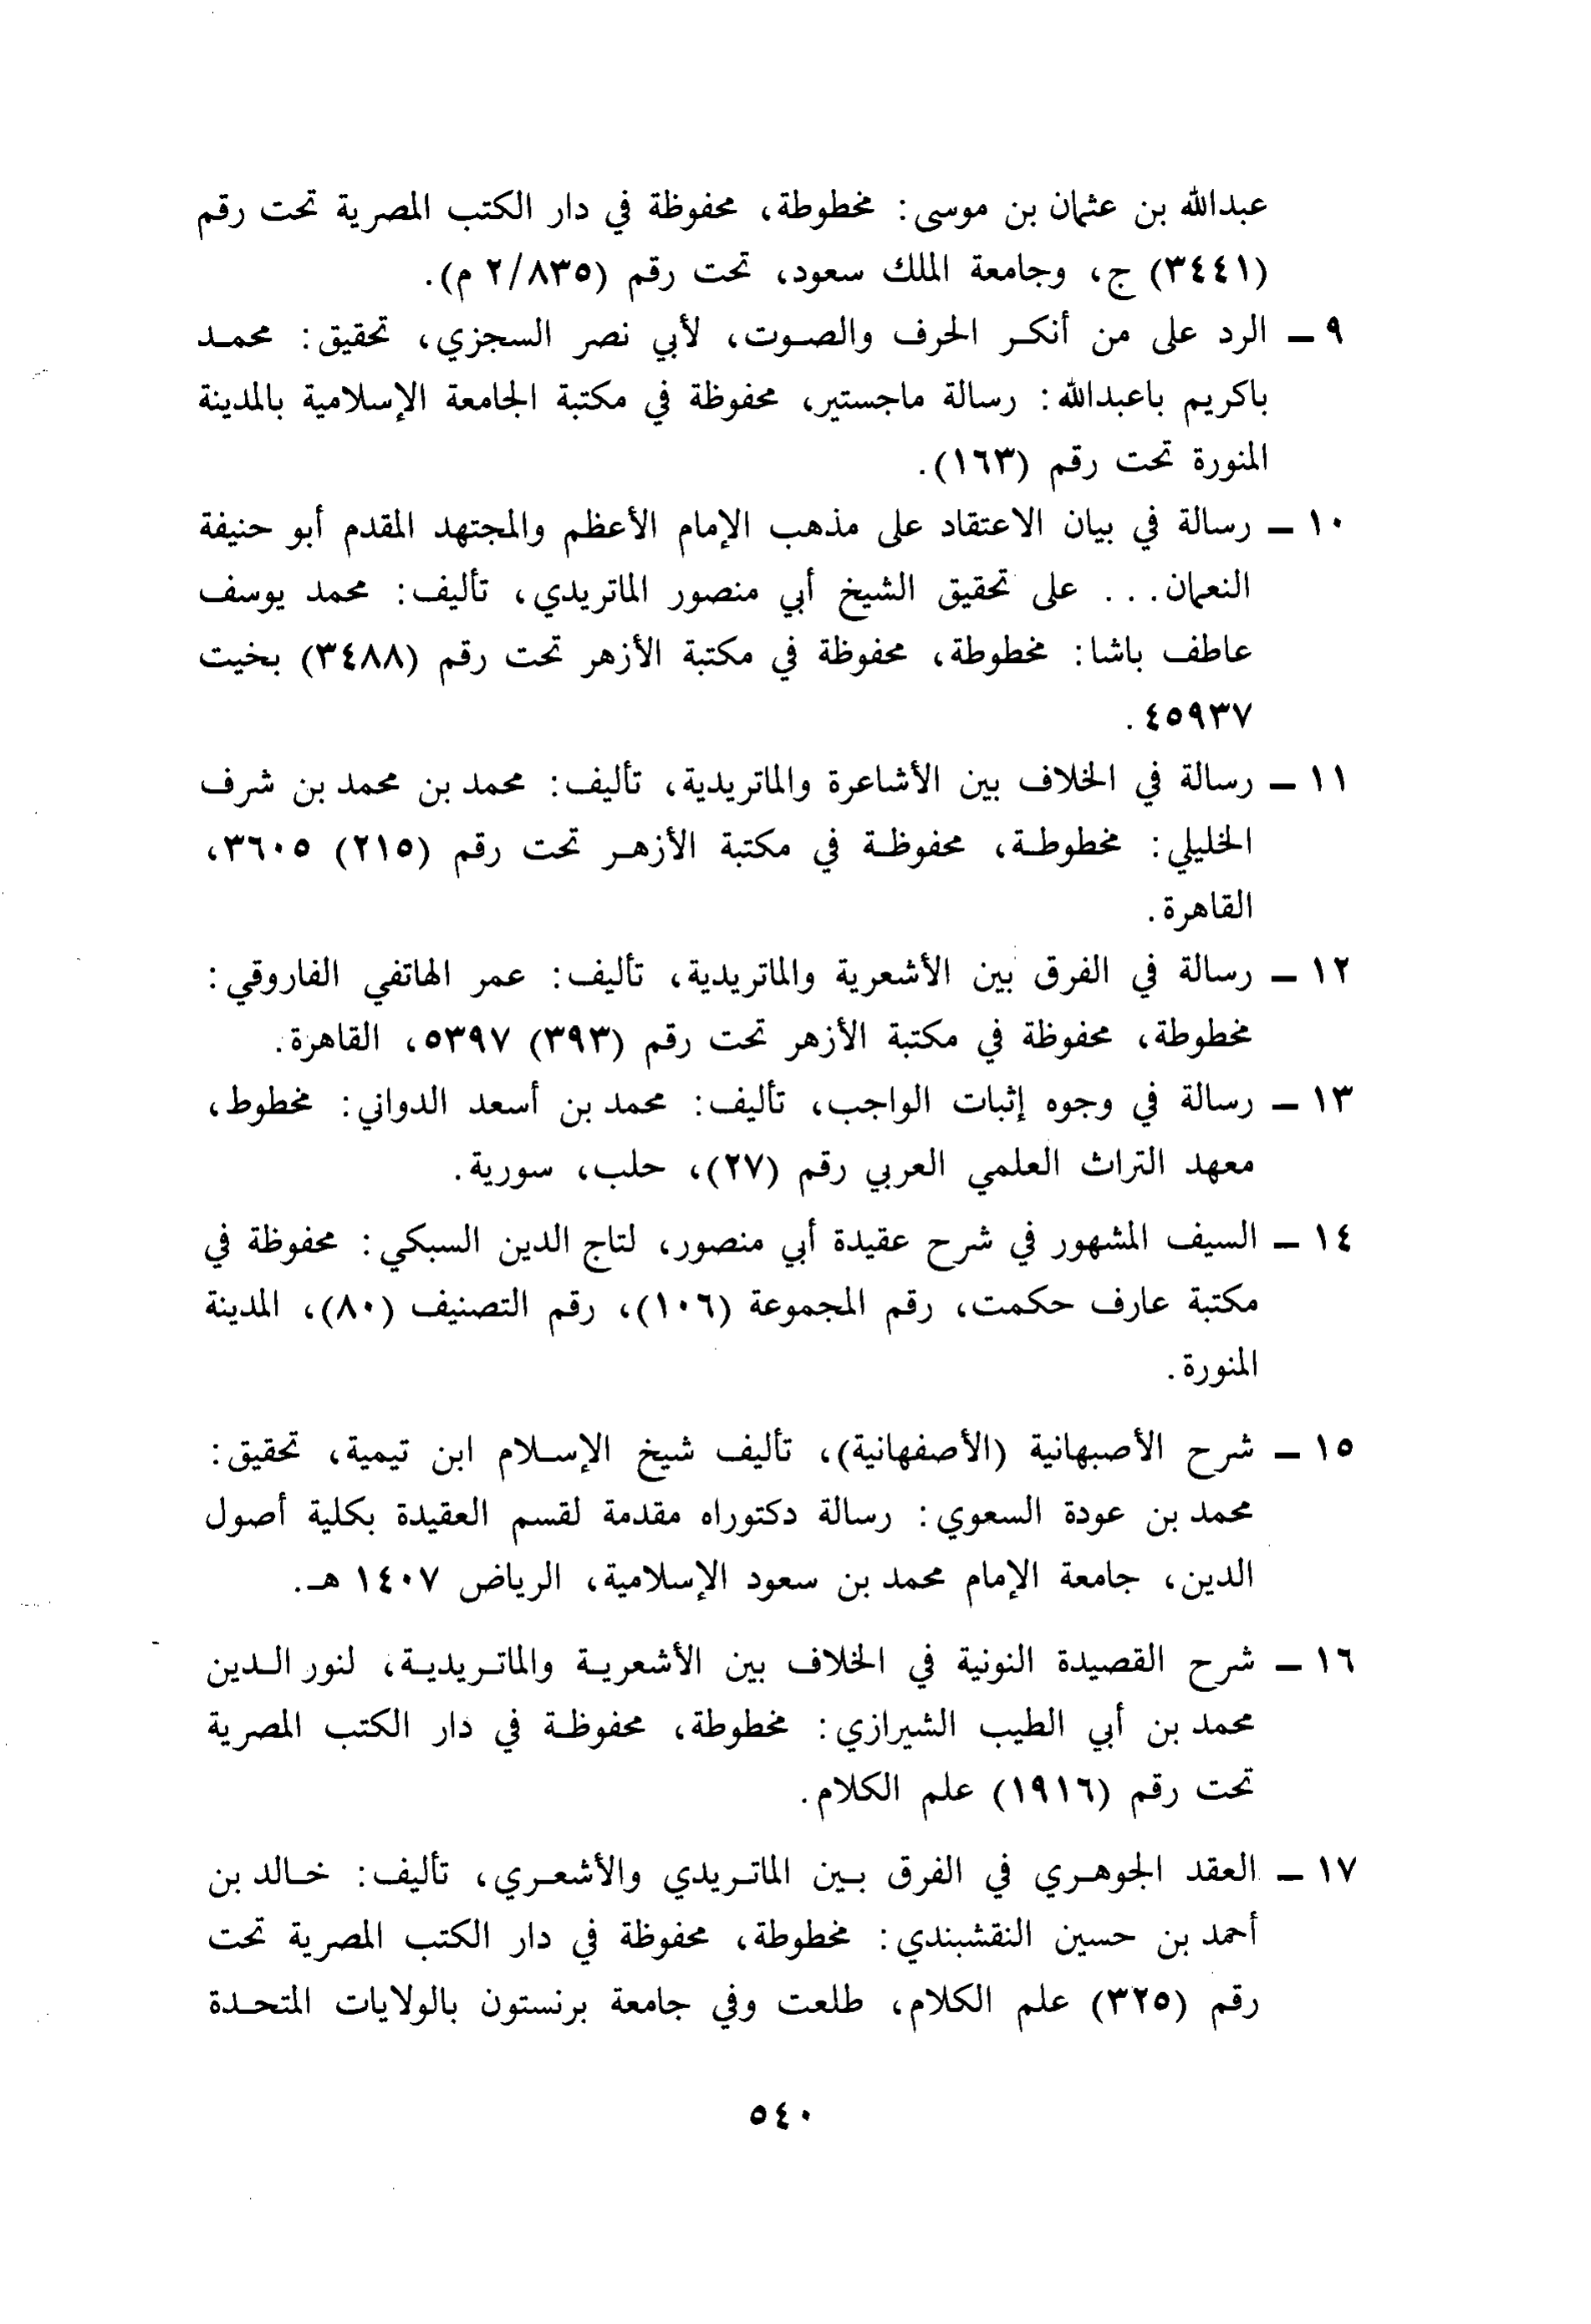 عبدالله بن عثمان بن موسى: مخطوطة، محفوظة في دار الكتب المصرية تحت رقم
(٣٤٤١) ج، وجامعة الملك سعود، تحت رقم (٢/٨٣٥ م).
٩ ـ الرد على من أنكر الحرف والصوت، لأبي نصر السجزي، تحقيق: محمد
باكريم باعبدالله: رسالة ماجستير، محفوظة في مكتبة الجامعة الإسلامية بالمدينة
المنورة تحت رقم (١٦٣).
١٠ ـ رسالة في بيان الاعتقاد على مذهب الإمام الأعظم والمجتهد المقدم أبو حنيفة
النعمان... على تحقيق الشيخ أبي منصور الماتريدي، تأليف: محمد يوسف
عاطف باشا: مخطوطة، محفوظة في مكتبة الأزهر تحت رقم (٣٤٨٨) بخيت
٤٥٩٣٧.
١١ ـ رسالة في الخلاف بين الأشاعرة والماتريدية، تأليف: محمد بن محمد بن شرف
الخليلي: مخطوطة، محفوظة في مكتبة الأزهر تحت رقم (٢١٥) ٣٦٠٥،
القاهرة.
١٢ ـ رسالة في الفرق بين الأشعرية والماتريدية، تأليف: عمر الهاتفي الفاروقي:
مخطوطة، محفوظة في مكتبة الأزهر تحت رقم (٣٩٣) ٥٣٩٧، القاهرة.
١٣ ـ رسالة في وجوه إثبات الواجب، تأليف: محمد بن أسعد الدواني: مخطوط،
معهد التراث العلمي العربي رقم (٢٧)، حلب، سورية.
١٤ ـ السيف المشهور في شرح عقيدة أبي منصور، لتاج الدين السبكي: محفوظة في
مكتبة عارف حكمت، رقم المجموعة (١٠٦)، رقم التصنيف (٨٠)، المدينة
المنورة.
١٥ ـ شرح الأصبهانية (الأصفهانية)، تأليف شيخ الإسلام ابن تيمية، تحقيق:
محمد بن عودة السعوي: رسالة دكتوراه مقدمة لقسم العقيدة بكلية أصول
الدين، جامعة الإمام محمد بن سعود الإسلامية، الرياض ١٤٠٧ هـ.
١٦ ـ شرح القصيدة النونية في الخلاف بين الأشعرية والماتريدية، لنور الدين
محمد بن أبي الطيب الشيرازي: مخطوطة، محفوظة في دار الكتب المصرية
تحت رقم (١٩١٦) علم الكلام.
١٧ ـ العقد الجوهري في الفرق بين الماتريدي والأشعري، تأليف: خالد بن
أحمد بن حسين النقشبندي: مخطوطة، محفوظة في دار الكتب المصرية تحت
رقم (٣٢٥) علم الكلام، طلعت وفي جامعة برنستون بالولايات المتحدة
٥٤٠